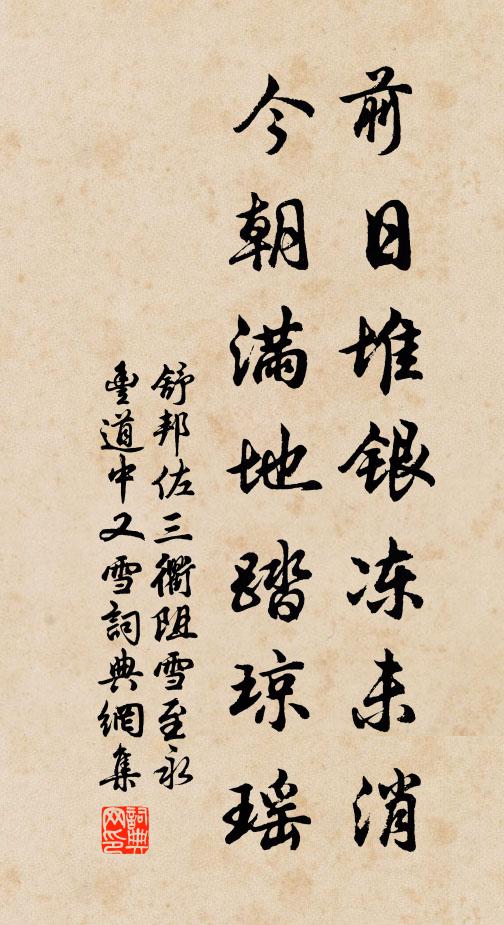 前日堆银冻未消
今朝满地踏琼瑶
舒邦佐三衢阻雪至永
丰道中又雪詞典網集
詞典网印